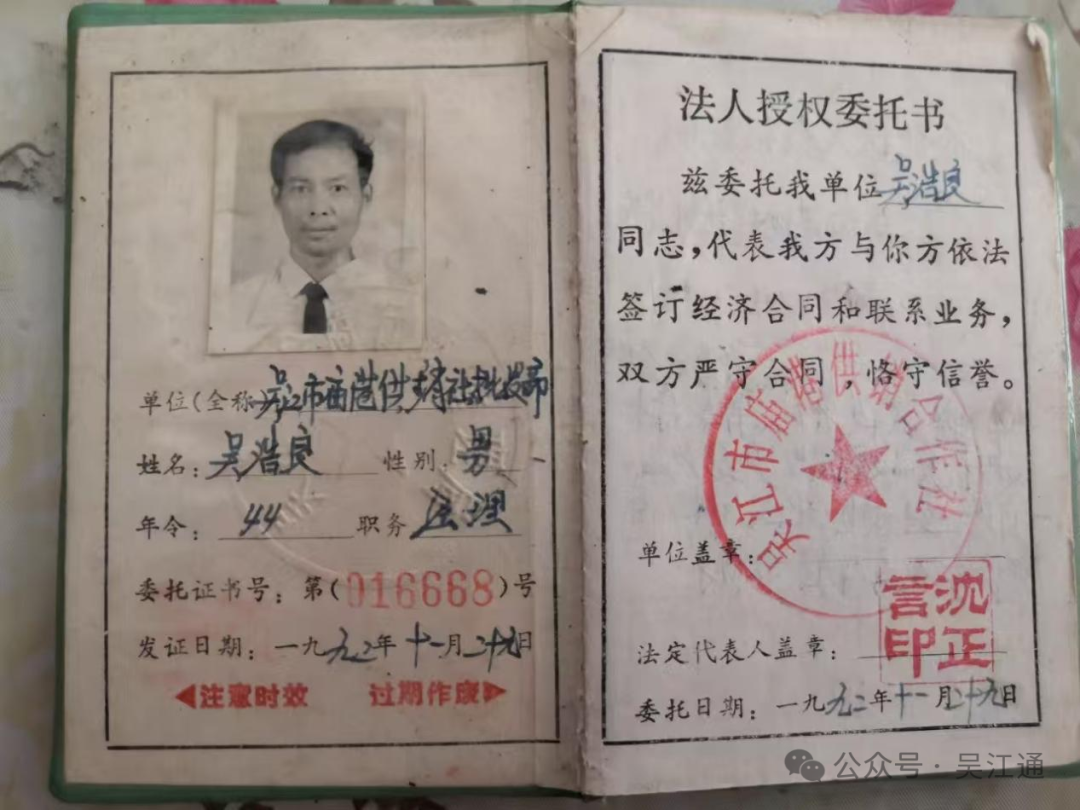 单位(全称 吴江市庙港供销社批发部
姓名: 吴浩良 性别: 男
年令: 44 职务 经理
委托证书号: 第(016668)号
发证日期: 一九九二年十一月二十九日
注意时效 过期作废
法人授权委托书
兹委托我单位吴浩良
同志,代表我方与你方依法
签订经济合同和联系业务,
双方严守合同,恪守信誉。
吴江市庙港供销合作社
单位盖章:
沈正言印
法定代表人盖章:
委托日期: 一九九二年十一月二十九日
公众号·吴江通